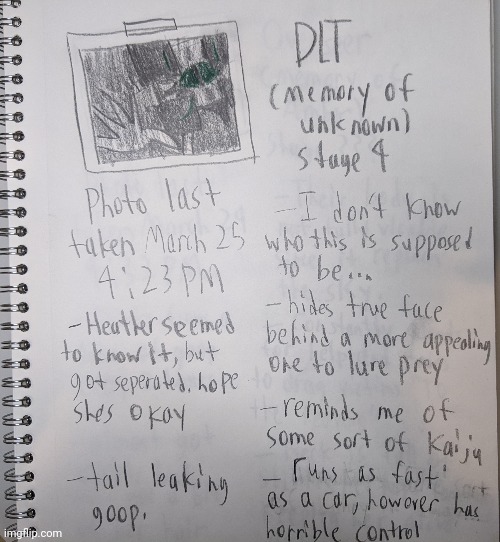 DLT
(memory of
unknown)
stage 4
Photo last
taken March 25
4:23 PM
-Heather seemed
to know it, but
got seperated. hope
shes okay
-tail leaking
goop.
-I don't know
who this is supposed
to be...
-hides true face
behind a more appealing
one to lure prey
-reminds me of
some sort of Kaiju
- runs as fast
as a car, however has
horrible control
imgflip.com